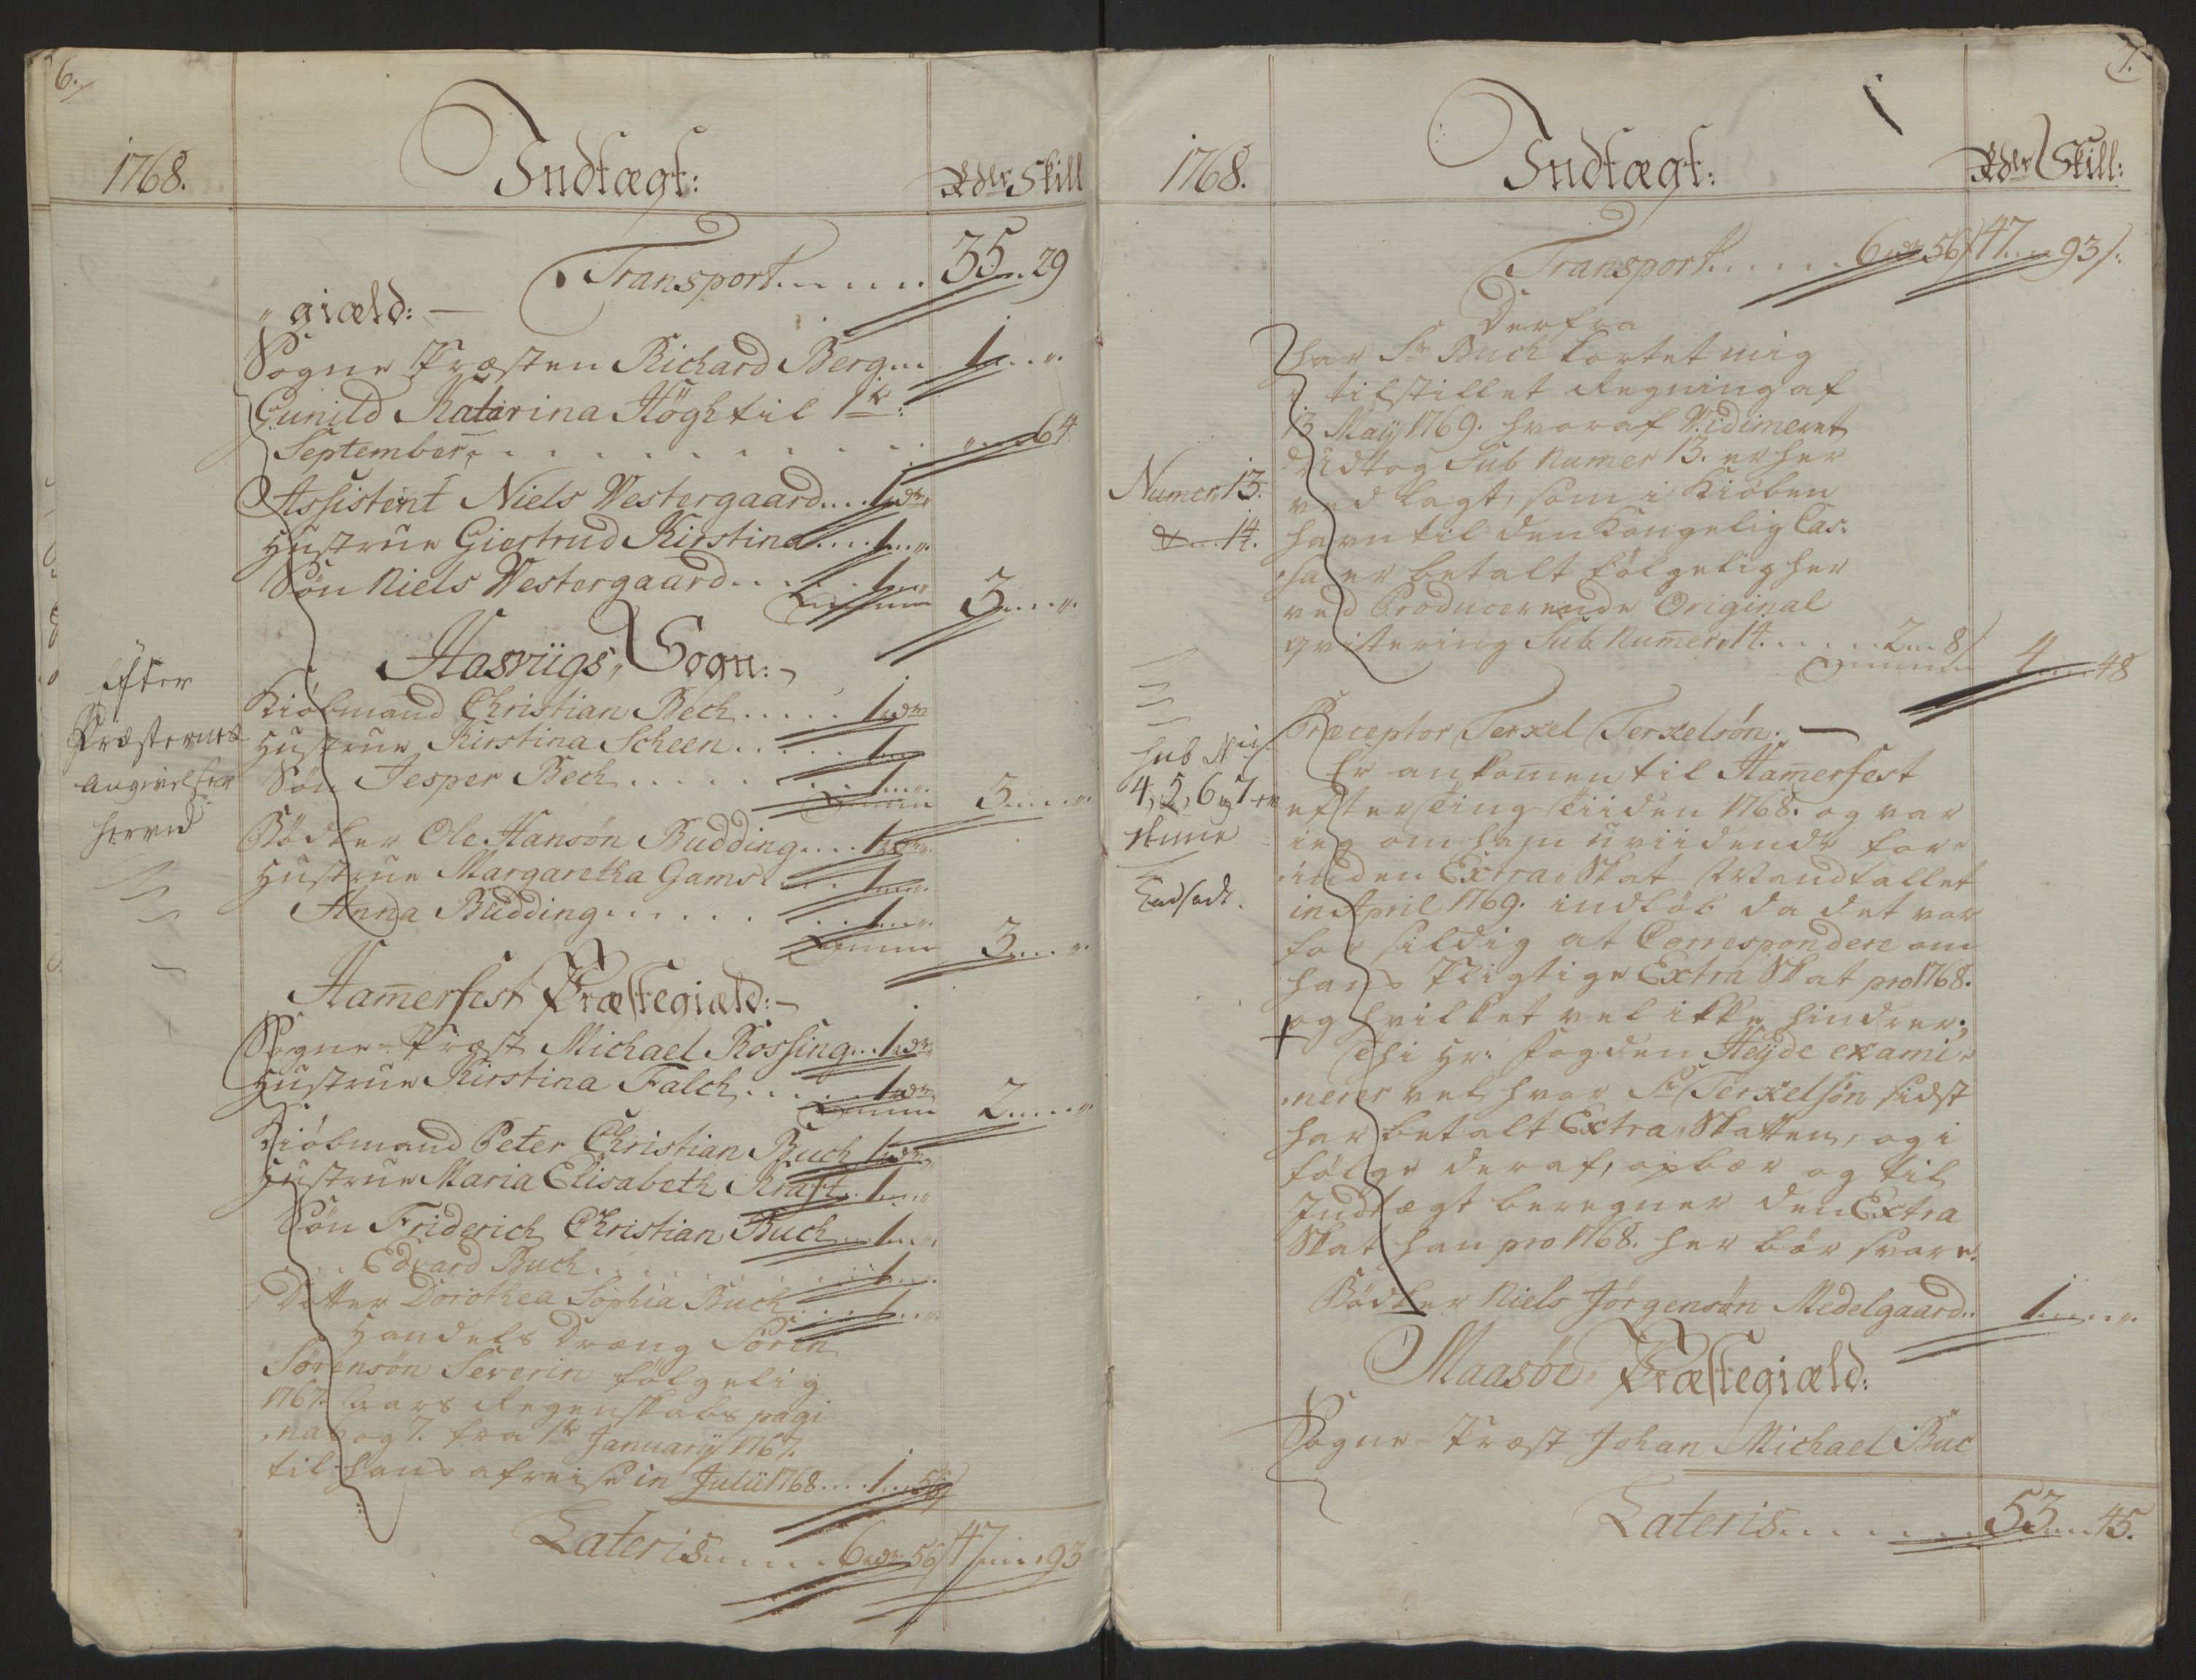 6.
1768.
Indtægt:
Rdlr Skill
Transport...... 35..29
giæld:—
Sogne Præsten Richard Berg... 1....
Gunild Katarina Högh til 1te
September......... 64
Assistent Niels Vestergaard....1rdr
Hustrue Giertrud Kirstina....1....
Søn Niels Vestergaard.....1....
3....
Hasviigs, Sogn:
Kiöbmand Christian Bech.....1rdr
Hustrue Kirstina Scheen.....1....
Søn Jesper Bech.....1....
3....
Efter
Præsternes
Angivelser
herved
Bödker Ole Hansøn Budding....1rdr
Hustrue Margaretha Gams....1....
Anna Budding.......1....
3....
Hamerfest Præstegiæld:-
Sogne-Præst Michael Rossing...1rdr
Hustrue Kirstina Falch....1rdr
2....
Kiöbmand Peter Christian Buch 1rdr
Hustrue Maria Elisabeth Kraft..1....
Søn Friderich Christian Buch..1....
Edvard Buch.......1....
Datter Dorothea Sophia Buch....1....
Handels Dreng Sören
Sörensön Severin følgelig
1767. Aars Regenskabs pagi
na 6 og 7. fra 1te January 1767.
til hans afreise in Julii 1768....1..56
Lateris.....6rdr 56/ 47....93
7.
1768.
Indtægt:
Rdlr Skill:
Transport......6rdr 56/ 47....93/.
Derfra
har Sr Buch kortet mig
tilstillet Regning af
13 May 1769. hvoraf Vidimeret
Udtog Sub Numer 13. er her
Numer 13.
ved lagt, som i Kiöben
&....14.
havn til den Kongelig Cas:
sa er betalt følgelig her
ved Producerende Original
qvittering Sub Numer, 14......2...8/
4....48
Præceptor Terkel Terkelsön.—
Er ankommen til Hamerfest
sub No
4, 5, 6 og 7
efter Ting Tiiden 1768. og var
ieg om ham uviidende for
inden Extra Skat Mandtallet
in April 1769. indköb da det var
for sildig at Correspondere om
hans Pligtige Extra Skat pro 1768.
og hvilket vel ikke hindrer;
thi Hr: Fogden Heyde exami
nerer vel hvor Sr Terkelsön sidst
har betalt Extra Skatten, og i
følge deraf, opbær og til
Indtægt beregner den Extra
Skat han pro 1768. her bör svare.
Bödker Niels Jörgensön Medelgaard.. 1......
Maasöe Præstegiæld:
Sogne-Præst Johan Michael Buc
Lateris....... 53...45.